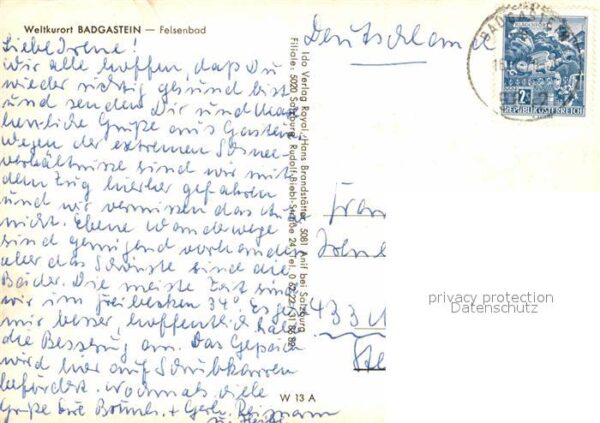 Weltkurort BADGASTEIN — Felsenbad
Liebe Irene!
Wir alle hoffen, daß Du
wieder richtig gesund bist
und senden Dir und
herzliche Grüße aus Gastein.
Wegen der extremen Schnee-
verhältnisse sind wir mit
dem Zug hierher gefahren
und wir vermissen das Auto
nicht. Ebene Wanderwege
sind genügend vorhanden
aber das Schönste sind die
Bäder. Die meiste Zeit sind
wir im Freibecken 34°. Es geht
mir besser, hoffentlich hält
die Besserung an. Das Gepäck
wird hier auf Schubkarren
befördert. Nochmals viele
Grüße Eure
Ido Verlag Royal, Hans Brandstätter, 5081 Anif bei Salzburg
Filiale: 5020 Salzburg, Rudolf-Biebl-Straße 24, Tel.
W 13 A
Deutschland
BADGASTEIN
2S
REPUBLIK ÖSTERREICH
Frau
Irene
433
privacy protection
Datenschutz